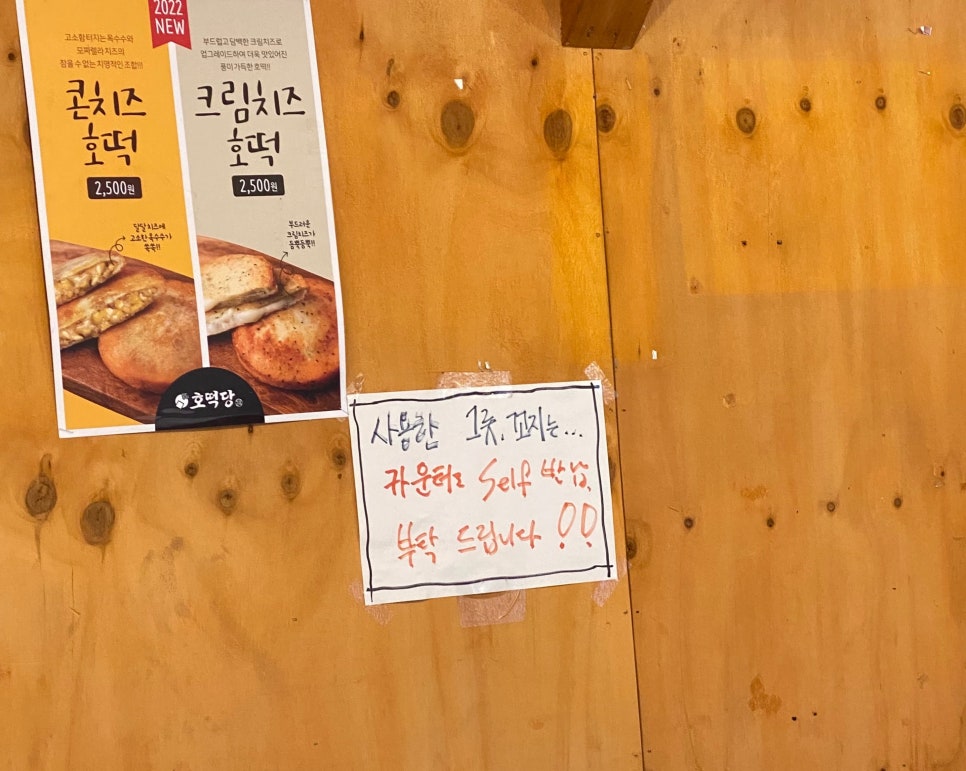 2022
NEW
고소함 터지는 옥수수와
모짜렐라 치즈의
참을 수 없는 치명적인 조합!!!
콘치즈
호떡
2,500원
달달 치즈에
고소한 옥수수가
쏙쏙!!
부드럽고 담백한 크림치즈로
업그레이드하여 더욱 맛있어진
풍미 가득한 호떡!!
크림치즈
호떡
2,500원
부드러운
크림치즈가
듬뿍듬뿍!!
호떡당
사용한 그릇, 꼬지는...
카운터로 Self 반납
부탁 드립니다 !!